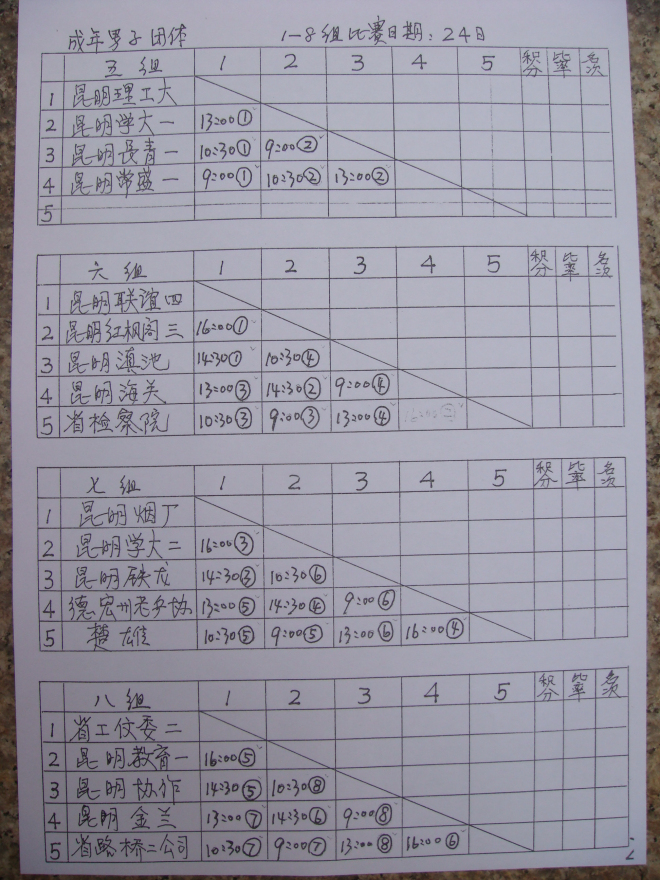 成年男子团体 1-8组比赛日期:24日
五组 1 2 3 4 5 积分 比率 名次
1 昆明理工大
2 昆明学大一 13:00①
3 昆明長青一 10:30① 9:00②
4 昆明常盛一 9:00① 10:30② 13:00②
5
六组 1 2 3 4 5 积分 比率 名次
1 昆明联谊四
2 昆明红枫阁三 16:00①
3 昆明滇池 14:30① 10:30④
4 昆明海关 13:00③ 14:30② 9:00④
5 省检察院 10:30③ 9:00③ 13:00④ 16:00②
七组 1 2 3 4 5 积分 比率 名次
1 昆明烟厂
2 昆明学大二 16:00③
3 昆明铁龙 14:30③ 10:30⑥
4 德宏州老乒协 13:00⑤ 14:30④ 9:00⑥
5 楚雄 10:30⑤ 9:00⑤ 13:00⑥ 16:00④
八组 1 2 3 4 5 积分 比率 名次
1 省工仗委二
2 昆明教育一 16:00⑤
3 昆明协作 14:30⑤ 10:30⑧
4 昆明金兰 13:00⑦ 14:30⑥ 9:00⑧
5 省路桥二公司 10:30⑦ 9:00⑦ 13:00⑧ 16:00⑥